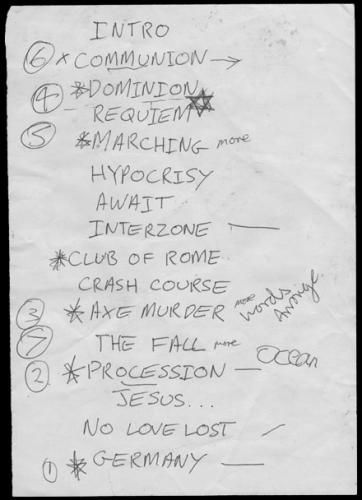 INTRO
⑥ x COMMUNION →
④ * DOMINION
REQUIEM ✡
⑤ * MARCHING more
HYPOCRISY
AWAIT
INTERZONE —
* CLUB OF ROME
CRASH COURSE
③ * AXE MURDER more words
⑦ THE FALL more
② * PROCESSION — Ocean
JESUS...
NO LOVE LOST /
① * GERMANY —